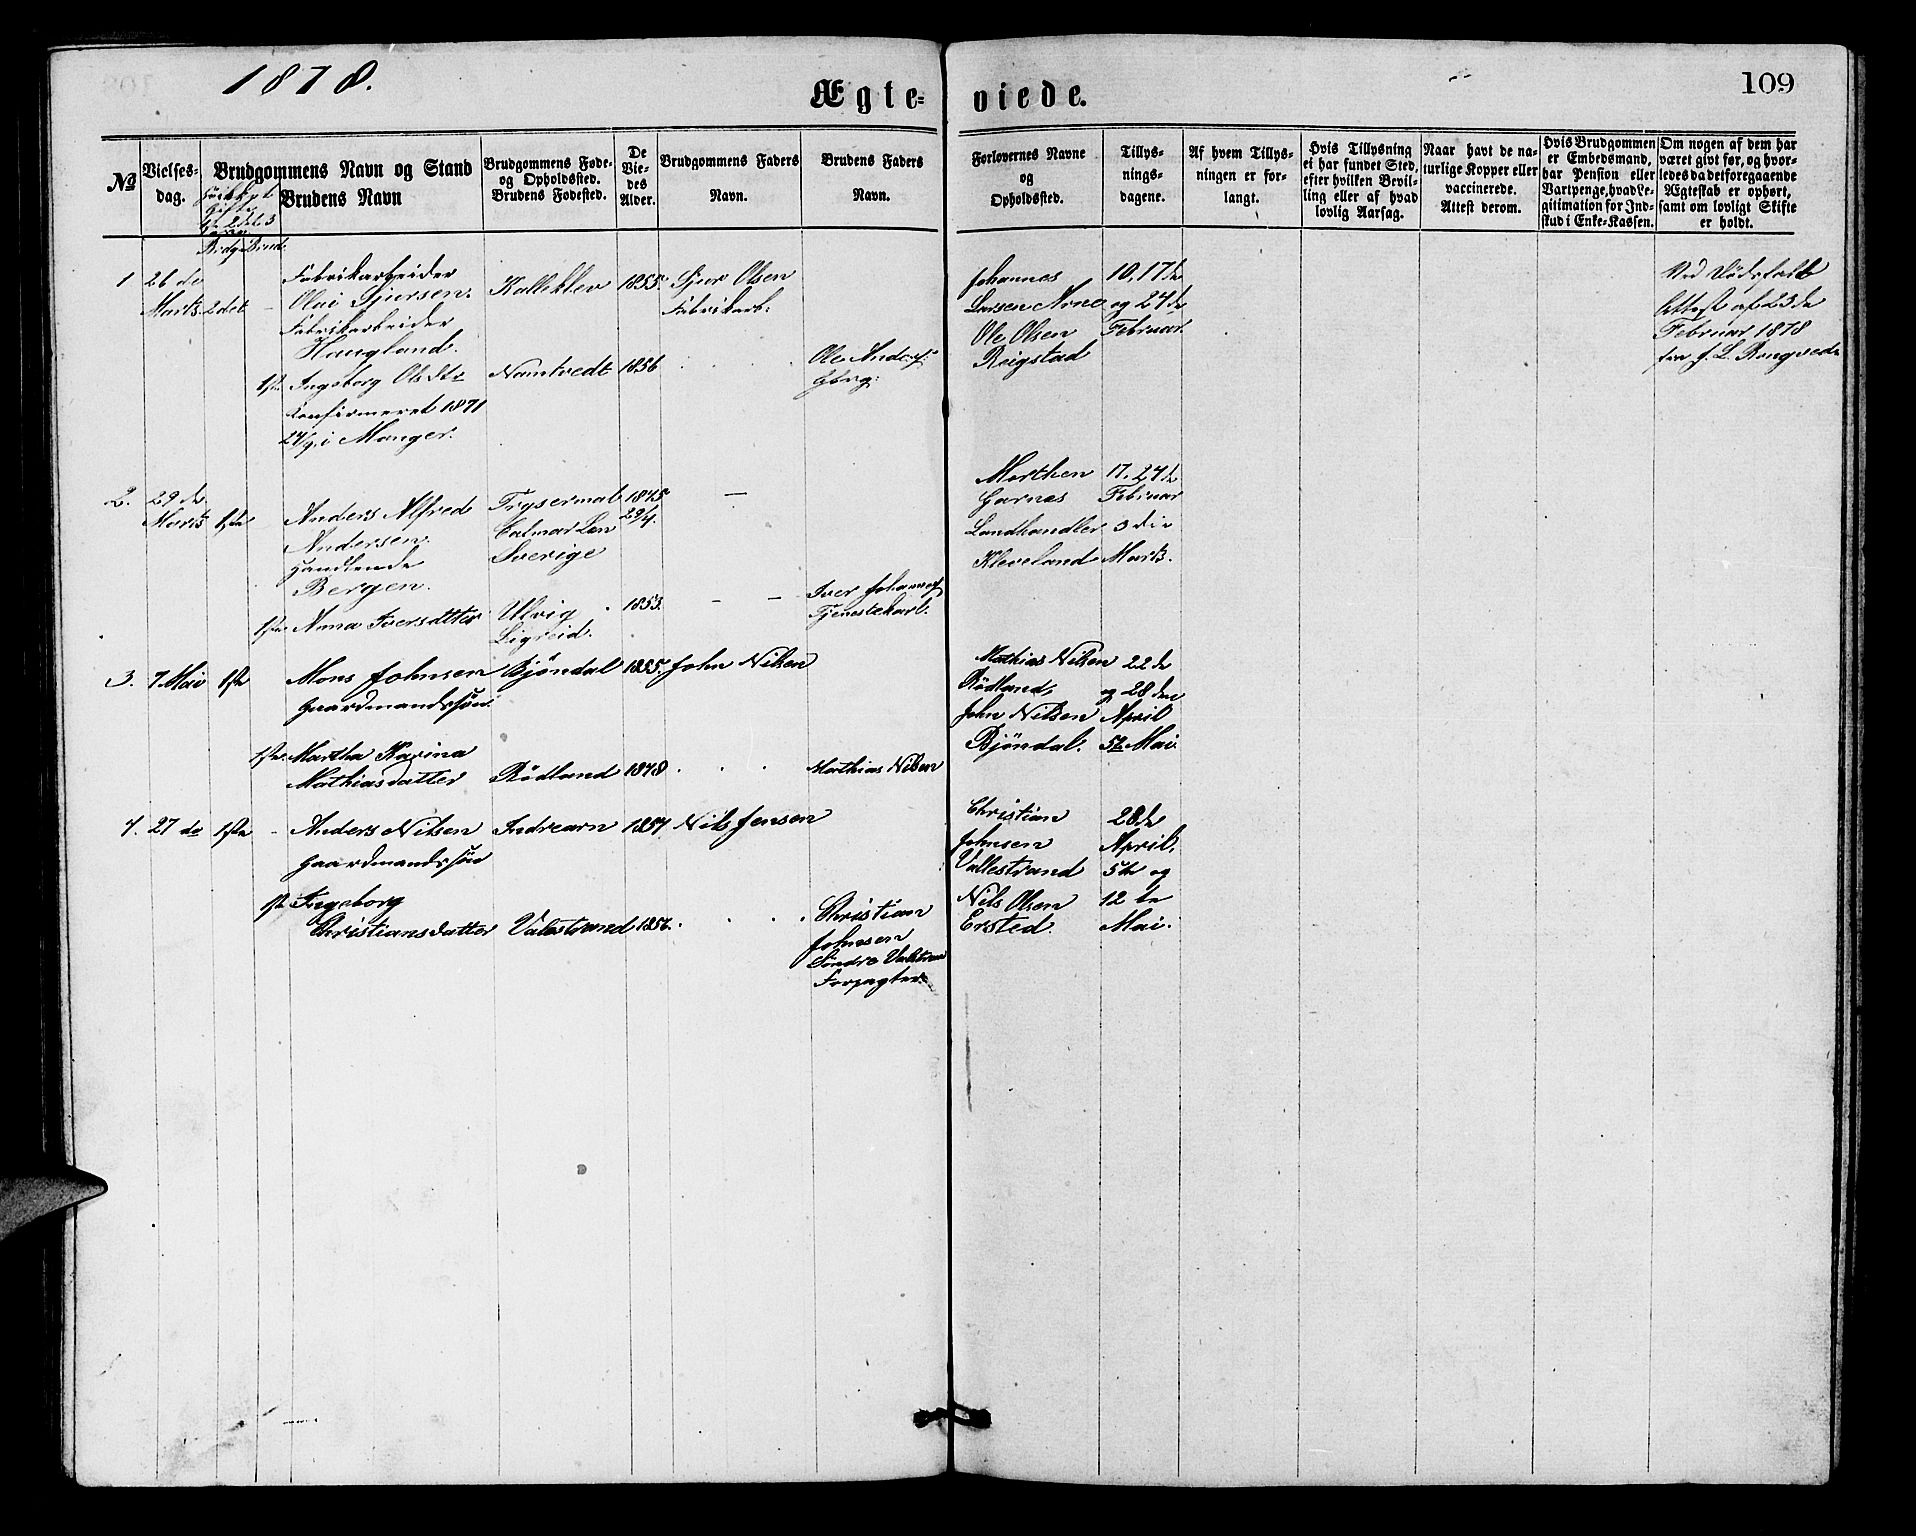 1878.
Ægte=
viede.
109
No
Vielses-
dag.
Brudgommens Navn og Stand
Brudens Navn
Brudgommens Føde-
og Opholdssted.
Brudens Fødested.
De
Vie-
des
Alder.
Brudgommens Faders
Navn.
Brudens Faders
Navn.
Forlovernes Navne
og
Opholdssted.
Tillys-
nings-
dagene.
Af hvem Tillys-
ningen er for-
langt.
Hvis Tillysning
ei har fundet Sted,
efter hvilken Bevil-
ling eller af hvad
lovlig Aarsag.
Naar havt de na-
turlige Kopper eller
vaccinerede.
Attest derom.
Hvis Brudgommen
er Embedsmand,
har Pension eller
Vartpenge, hvad Le-
gitimation for Ind-
skud i Enke-Kassen.
Om nogen af dem har
været givt før, og hvor-
ledes da det foregaaende
Ægteskab er ophørt,
samt om lovligt Skifte
er holdt.
1
26 de
Marts
2det
Fabrikarbeider
Olai Sjursen.
Fabrikarbeider
Haugland.
Kalleklev
1855
Sjur Olsen
Fabrikarb:
1ste
Ingeborg Olsdtr
Konfirmeret 1871
24/9 i Manger.
Namtvedt
1856
Ole Anders:
Gbrg:
Johannes
Larsen Arne
Ole Olsen
Reigstad
10, 17de
og 24de
Februar.
Ved Dødsfald
Attest af 23de
Februar 1878
fra f. L. Ringved
2.
29 de
Marts
1ste
Anders Alfred
Andersen.
Handlende
Bergen.
Trysermal
Calmar Len
Sverige
1845
29/4.
1ste
Anna Iversdtter
Ulvig
Ligreid.
1853.
Iver Johannes
Tjenestekarl.
Morthen
Garnes
Landhandler
Kleveland
17. 24de
Februar
3die
Marts.
3.
7 Mai
1ste
Mons Johnsen
Gaardmandssøn.
Bjöndal
1855.
John Nilsen
1ste
Martha Karina
Mathiasdatter
Rödland
1848
Mathias Nilsen
Mathias Nilsen
Rödland,
John Nilsen
Bjöndal.
22de
og 28 den
April
5te Mai.
4.
27 de
1ste
Anders Nilsen
Gaardmandssøn
Indrearn
1857
Nils Jensen
1ste
Ingeborg
Christiansdatter
Valestrand
1856.
Christian
Johnsen
Søndre Valestran
Forpagter.
Christian
Johnsen
Vallestrand
Nils Olsen
Ersted.
28de
April,
5te og
12 te
Mai.